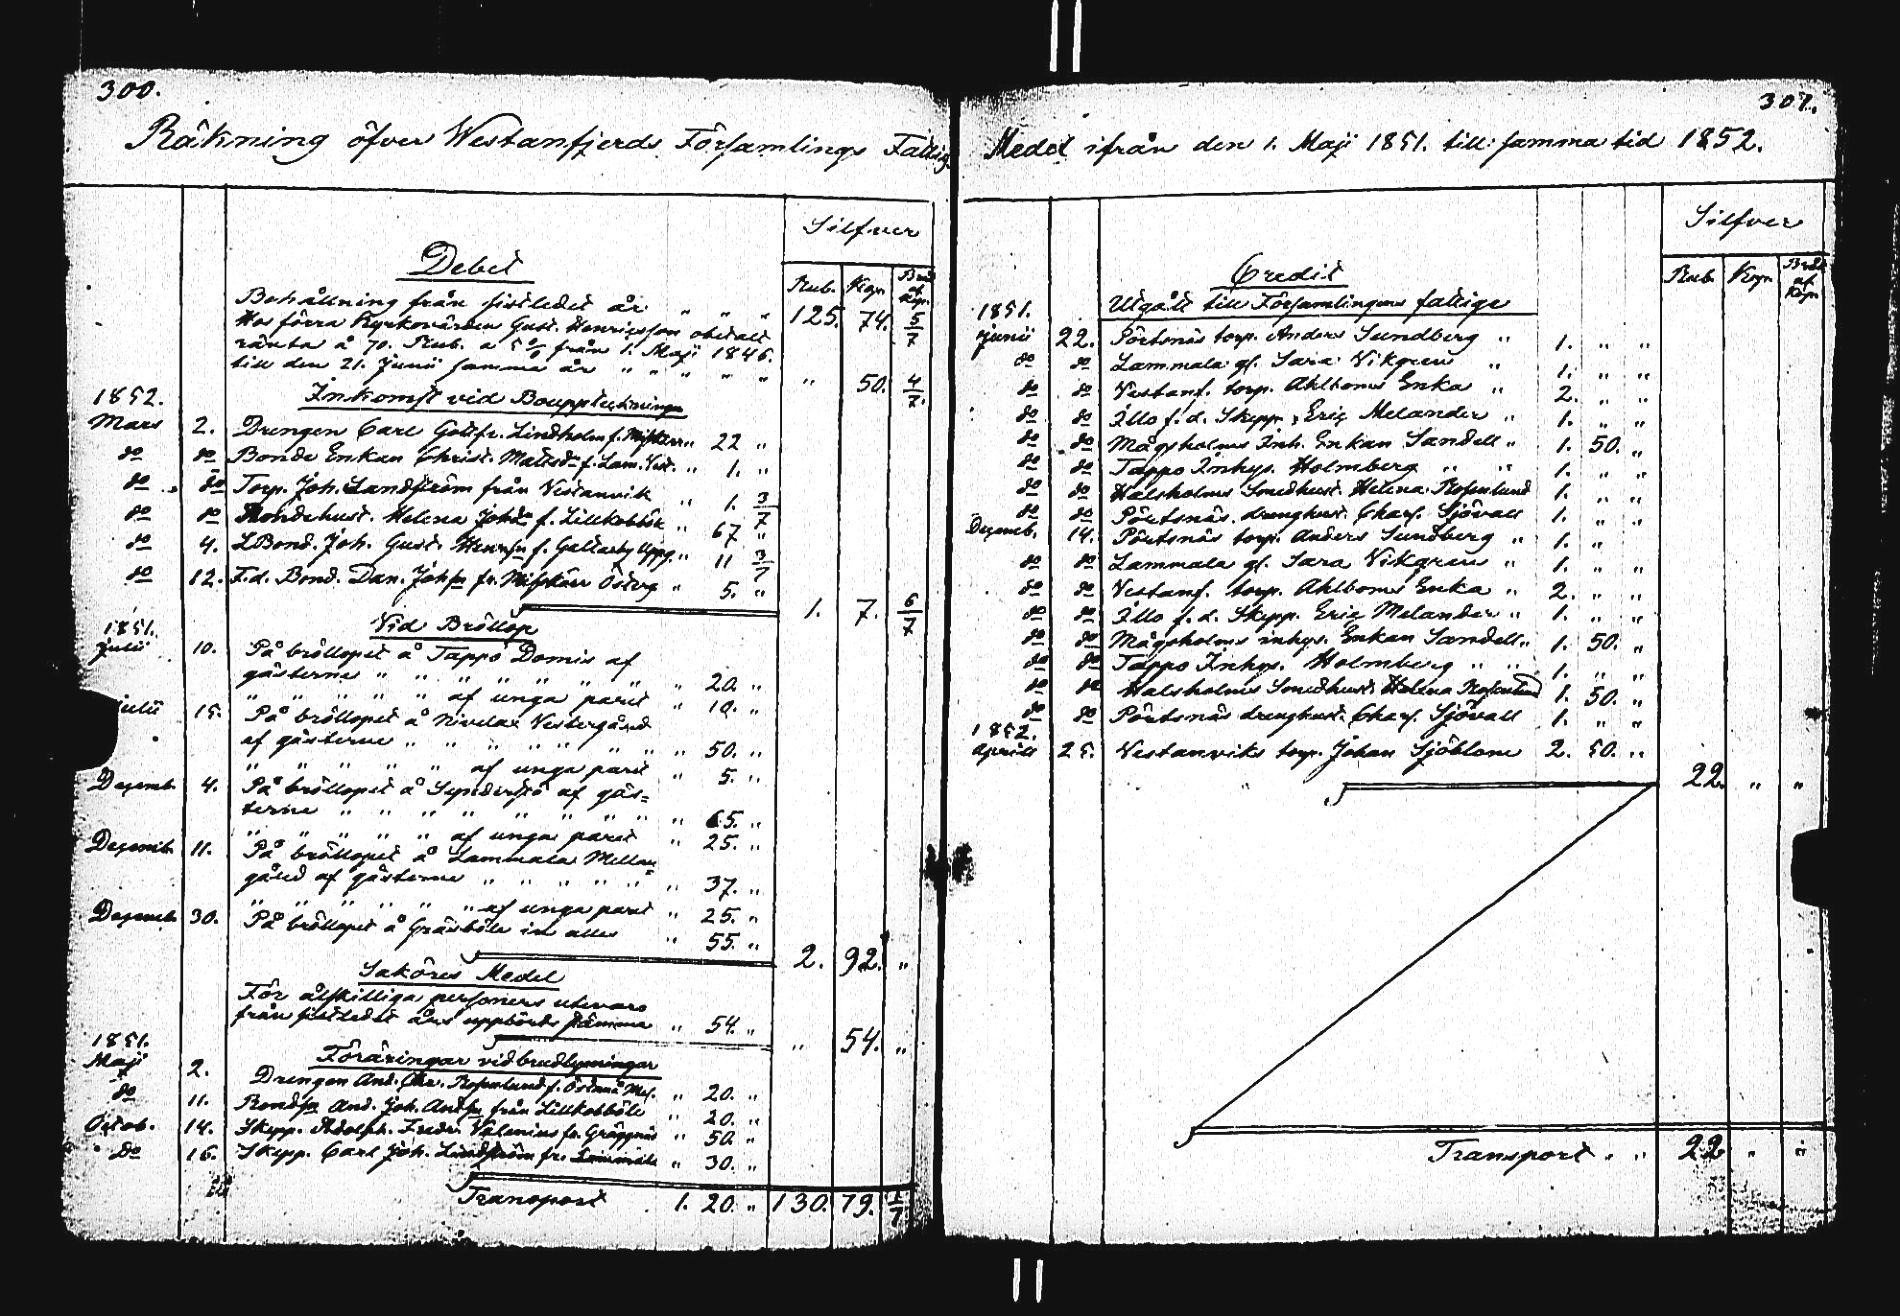 300.
Räkning öfver Westanfjerds Församlings Fattig
Silfver
Debet
Rub. Kop. Bråk af Kop.
Behållning från sistledet år " " " 125. 74. 5/7
Hos förra Kyrkovärden Gust. Henricsson obetalt
ränta å 70. Rub. a 5 % från 1. Maji 1846.
till den 21. Junii samma år " " " " " " 50. 4/7.
1852. Inkomst vid Bouppteckningar
Mars 2. Drengen Carl Gottfr. Lindholm f. Misskärr " 22 "
do do Bonde Enkan Christ. Mattsdr f. Lam. Vest. " 1. "
do do Torp. Joh. Landström från Vestanvik " 1. 3/7
do do Bondehust. Helena Johdr f. Lillkobböle " 67 "
do 4. LBond. Joh. Gust. Henrsn f. Galtarby Uppg. " 11 3/7
do 12. F.d. Bond. Dan. Johsn fr. Misskärr Österg " 5. "
1. 7. 6/7
1851. Vid Bröllop
Julii 10. På bröllopet å Tappo Domis af
gästerne " " " " " " " " 20. "
" " " " " af unga paret " 10. "
Julii 15. På bröllopet å Nivelax Vestergård
af gästerne " " " " " " " " 50. "
" " " " " af unga paret " 5. "
Decemb. 4. På bröllopet å Sunderstö af gäs=
terne " " " " " " " " " 65. "
" " " " " af unga paret " 25. "
Decemb. 11. På bröllopet å Lammala Mellan=
gård af gästerne " " " " " " 37. "
" " " " " " af unga paret " 25. "
Decemb. 30. På bröllopet å Gräsböle in alles " 55. "
2. 92. "
Saköres Medel
För åtskilliga personers utevaro
från sistledet års uppbörds stämma " 54. "
" 54. "
1851. Föräringar vid brudlysningar
Maji 2. Drengen And. Chr. Rosenlund f. Östanå Mel. " 20. "
do 11. Bondsn And. Joh. Andsn från Lillkobböle " 20. "
Octob. 14. Skepp. Adolph. Fredr. Valenius fr. Gräggnäs " 50. "
do 16. Skepp. Carl Joh. Lindström fr. Lammala " 30. "
Transport 1. 20. " 130. 79. 1/7
301.
Medel ifrån den 1. Maji 1851. till samma tid 1852.
Silfver
Credit
Rub. Kop. Bråk af Kop.
1851. Utgått till Församlingens fattige
Junii 22. Pörtsnäs torp. Anders Sundberg " 1. " "
do do Lammala gl. Sara Vikgren " 1. " "
do do Vestanf. torp. Ahlboms Enka " 2. " "
do do Illo f. d. Skepp. Eric Melander " 1. " "
do do Mågsholms Inh. Enkan Sandell " 1. 50. "
do do Tappo Inhys. Holmberg " " 1. " "
do do Halsholms Smedhust. Helena Rosenlund 1. " "
do do Pörtsnäs drenghust. Charl. Sjövall 1. " "
Decemb. 14. Pörtsnäs torp. Anders Sundberg " 1. "
do do Lammala gl. Sara Vikgren " 1. " "
do do Vestanf. torp. Ahlboms Enka " 2. " "
do do Illo f. d. Skepp. Eric Melander " 1. " "
do do Mågsholms inhys. Enkan Sandell " 1. 50. "
do do Tappo Inhys. Holmberg " " 1. " "
do do Halsholms Smedhust. Helena Rosenlund 1. 50. "
do do Pörtsnäs drenghust. Charl. Sjövall 1. " "
1852.
Aprill 25. Vestanviks torp. Johan Sjöblom 2. 50. "
22. " "
Transport " " 22 " "